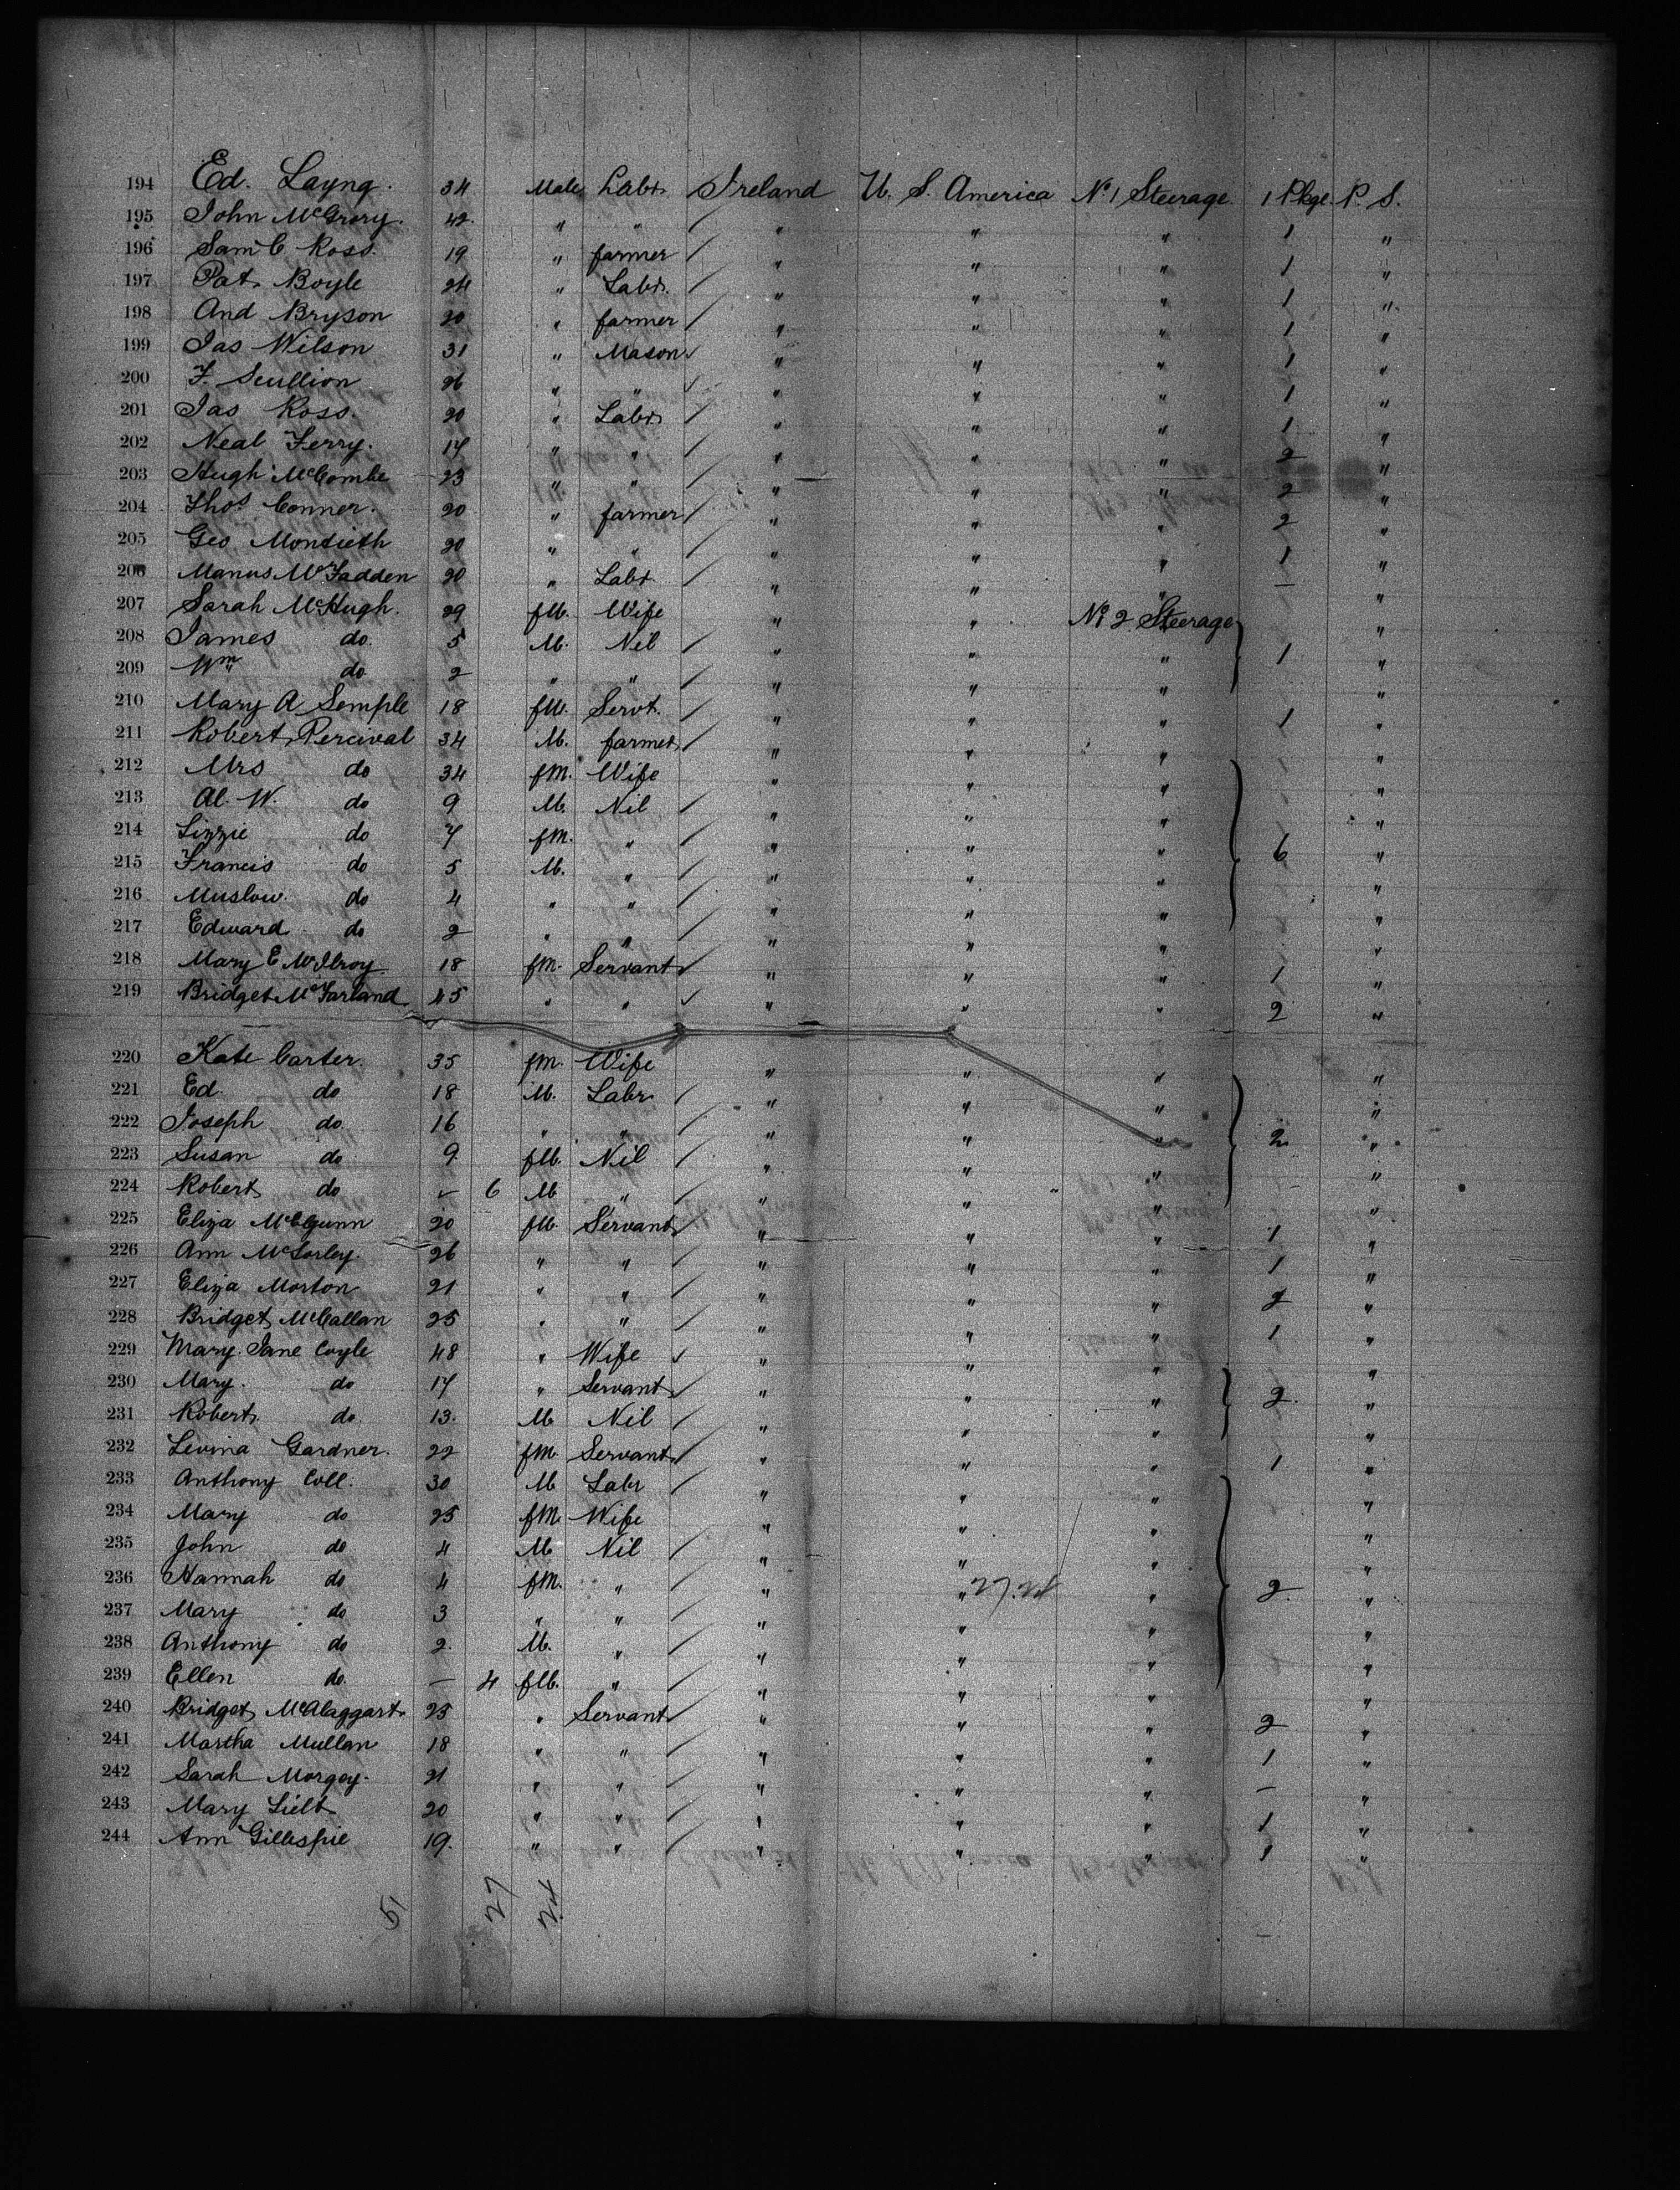 194 Ed. Layng. 34 Male Labr. Ireland U. S. America No 1 Steerage 1 Pkge. P. S.
195 John McGrory. 42 " " " " " 1 "
196 Saml C Ross. 19 " farmer " " " 1 "
197 Pat. Boyle 24 " Labr. " " " 1 "
198 And Bryson 20 " farmer " " " 1 "
199 Jas Wilson 31 " Mason " " " 1 "
200 F. Scullion 26 " " " " " 1 "
201 Jas Ross. 20 " Labr " " " 1 "
202 Neal Ferry. 17 " " " " " 2 "
203 Hugh McCombe 23 " " " " " 2 "
204 Thos Conner. 20 " farmer " " " 2 "
205 Geo Montieth 20 " " " " " 1 "
206 Manus McFadden 20 " Labr. " " " — "
207 Sarah McHugh. 29 fM. Wife " " No 2 Steerage "
208 James do. 5 M. Nil " " " 1 "
209 Wm do 2 " " " " " "
210 Mary A Semple 18 fM. Servt. " " " 1 "
211 Robert Percival 34 M. farmer " " " "
212 Mrs do 34 fM. Wife " " " "
213 Al. W. do 9 M. Nil " " " "
214 Lizzie do 7 fM. " " " " 6 "
215 Francis do 5 M. " " " " "
216 Muslow. do 4 " " " " " "
217 Edward do 2 " " " " " "
218 Mary E McIlroy 18 fM. Servant " " " 1 "
219 Bridget McFarland 45 " " " " " 2 "
220 Kate Carter. 35 fM. Wife " " " "
221 Ed. do 18 M. Labr " " " "
222 Joseph do. 16 " " " " " 2 "
223 Susan do 9 fM. Nil " " " "
224 Robert do 6 M " " " " "
225 Eliza 20 fM. Servant " " " 1 "
226 Ann McSorley. 26 " " " " " 1 "
227 Eliza Morton 21 " " " " " 2 "
228 Bridget McCallan 25 " " " " " 1 "
229 Mary Jane Coyle 48 " Wife " " " "
230 Mary. do 17 " Servant " " " 2. "
231 Robert. do. 13. M Nil " " " "
232 Levina Gardner. 22 fM. Servant " " " 1 "
233 Anthony Coll. 30 M Labr " " " "
234 Mary do 25 fM. Wife " " " "
235 John do 4 M Nil " " " "
236 Hannah do 4 fM. " " " 27.24 " 2. "
237 Mary do 3 " " " " " "
238 Anthony do 2. M. " " " " "
239 Ellen do. — 4 fM. " " " " "
240 Bridget McAlaggart 25 " Servant " " " 2 "
241 Martha Mullan 18 " " " " " 1 "
242 Sarah Morgay. 21 " " " " " — "
243 Mary 20 " " " " " 1 "
244 Ann Gillespie 19. " " " " " 1 "
51 27 24